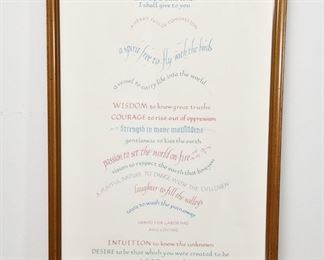 I shall give to you
A HEART FULL OF COMPASSION
a spirit free to fly with the birds
a vessel to carry life into the world
WISDOM to know great truths
COURAGE to rise out of oppression
Strength to move mountains
gentleness to kiss the earth
passion to set the world on fire
vision to respect the earth that bore you
A PLAYFUL NATURE TO DANCE WITH THE CHILDREN
laughter to fill the valleys
tears to wash the pain away
HANDS FOR LABORING
AND LOVING
INTUITION to know the unknown
DESIRE to be that which you were created to be